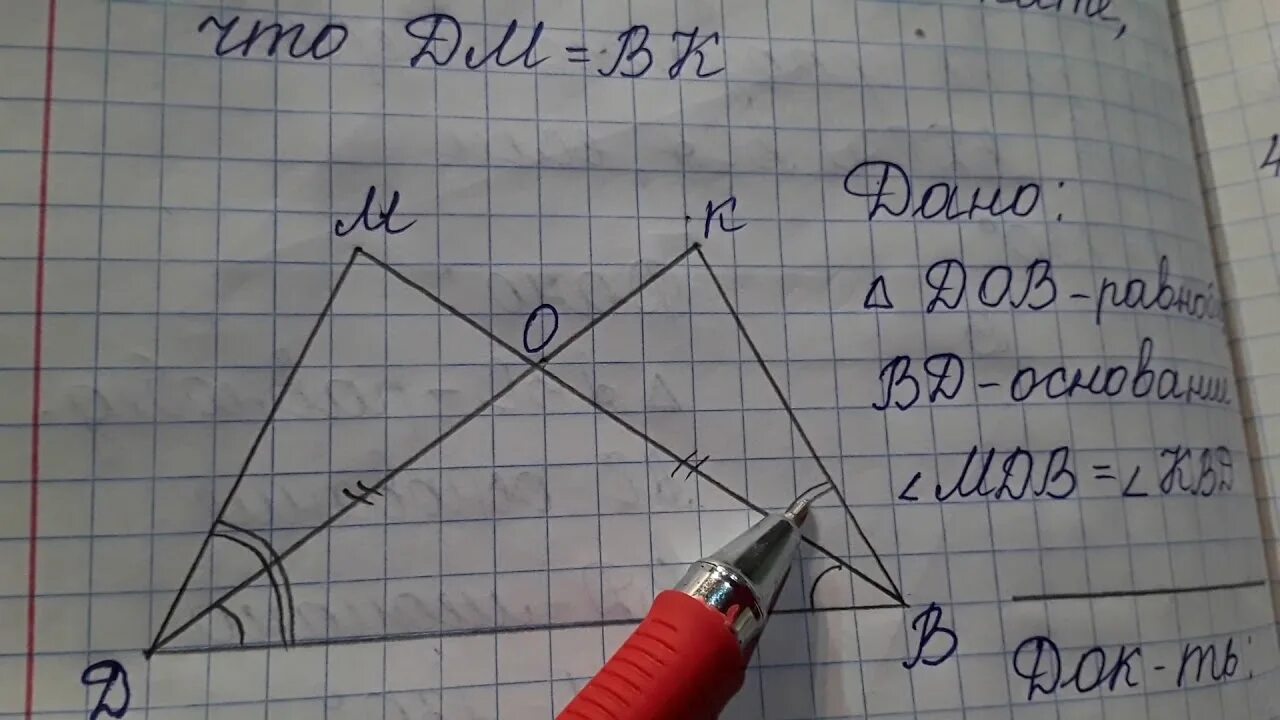 что ДМ = ВК
М
К
О
Д
В
Дано:
Δ ДОВ - равно
ВД - основани
∠МДВ = ∠КВД
Док-ть:
4